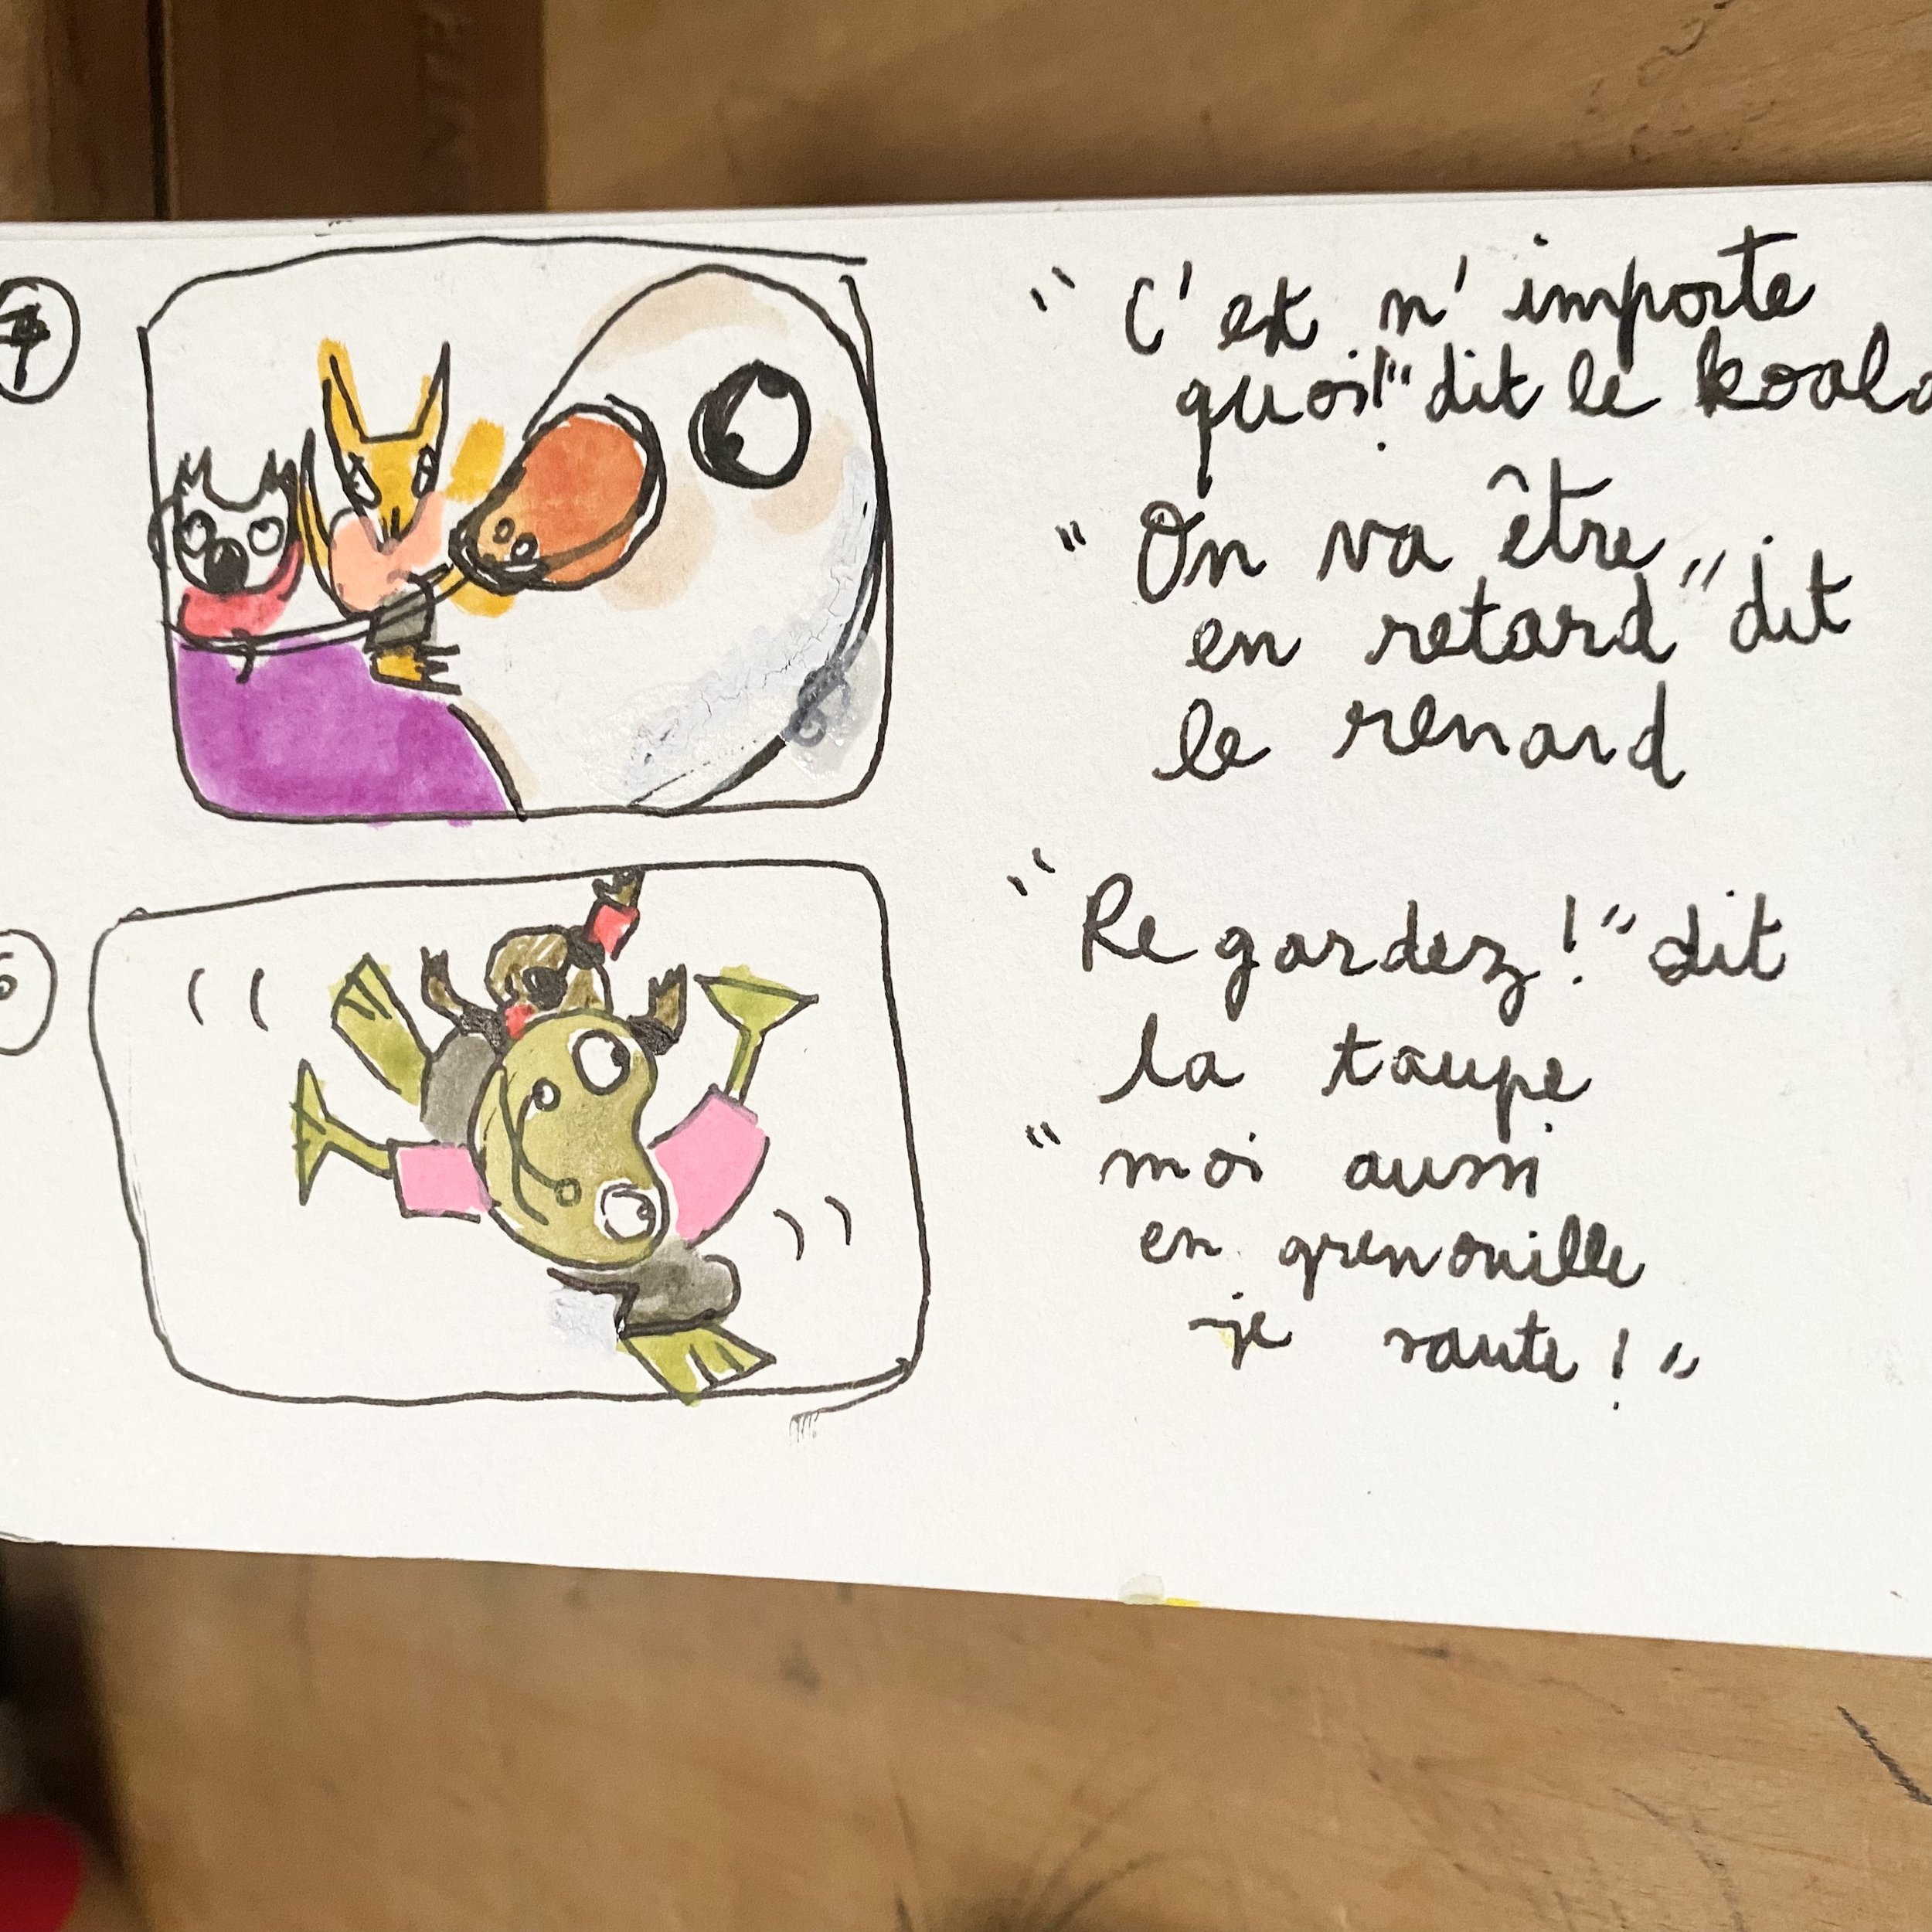 7
" C'est n'importe
quoi!" dit le koala
" On va être
en retard" dit
le renard
" Regardez!" dit
la taupe
" moi aussi
en grenouille
je saute! "